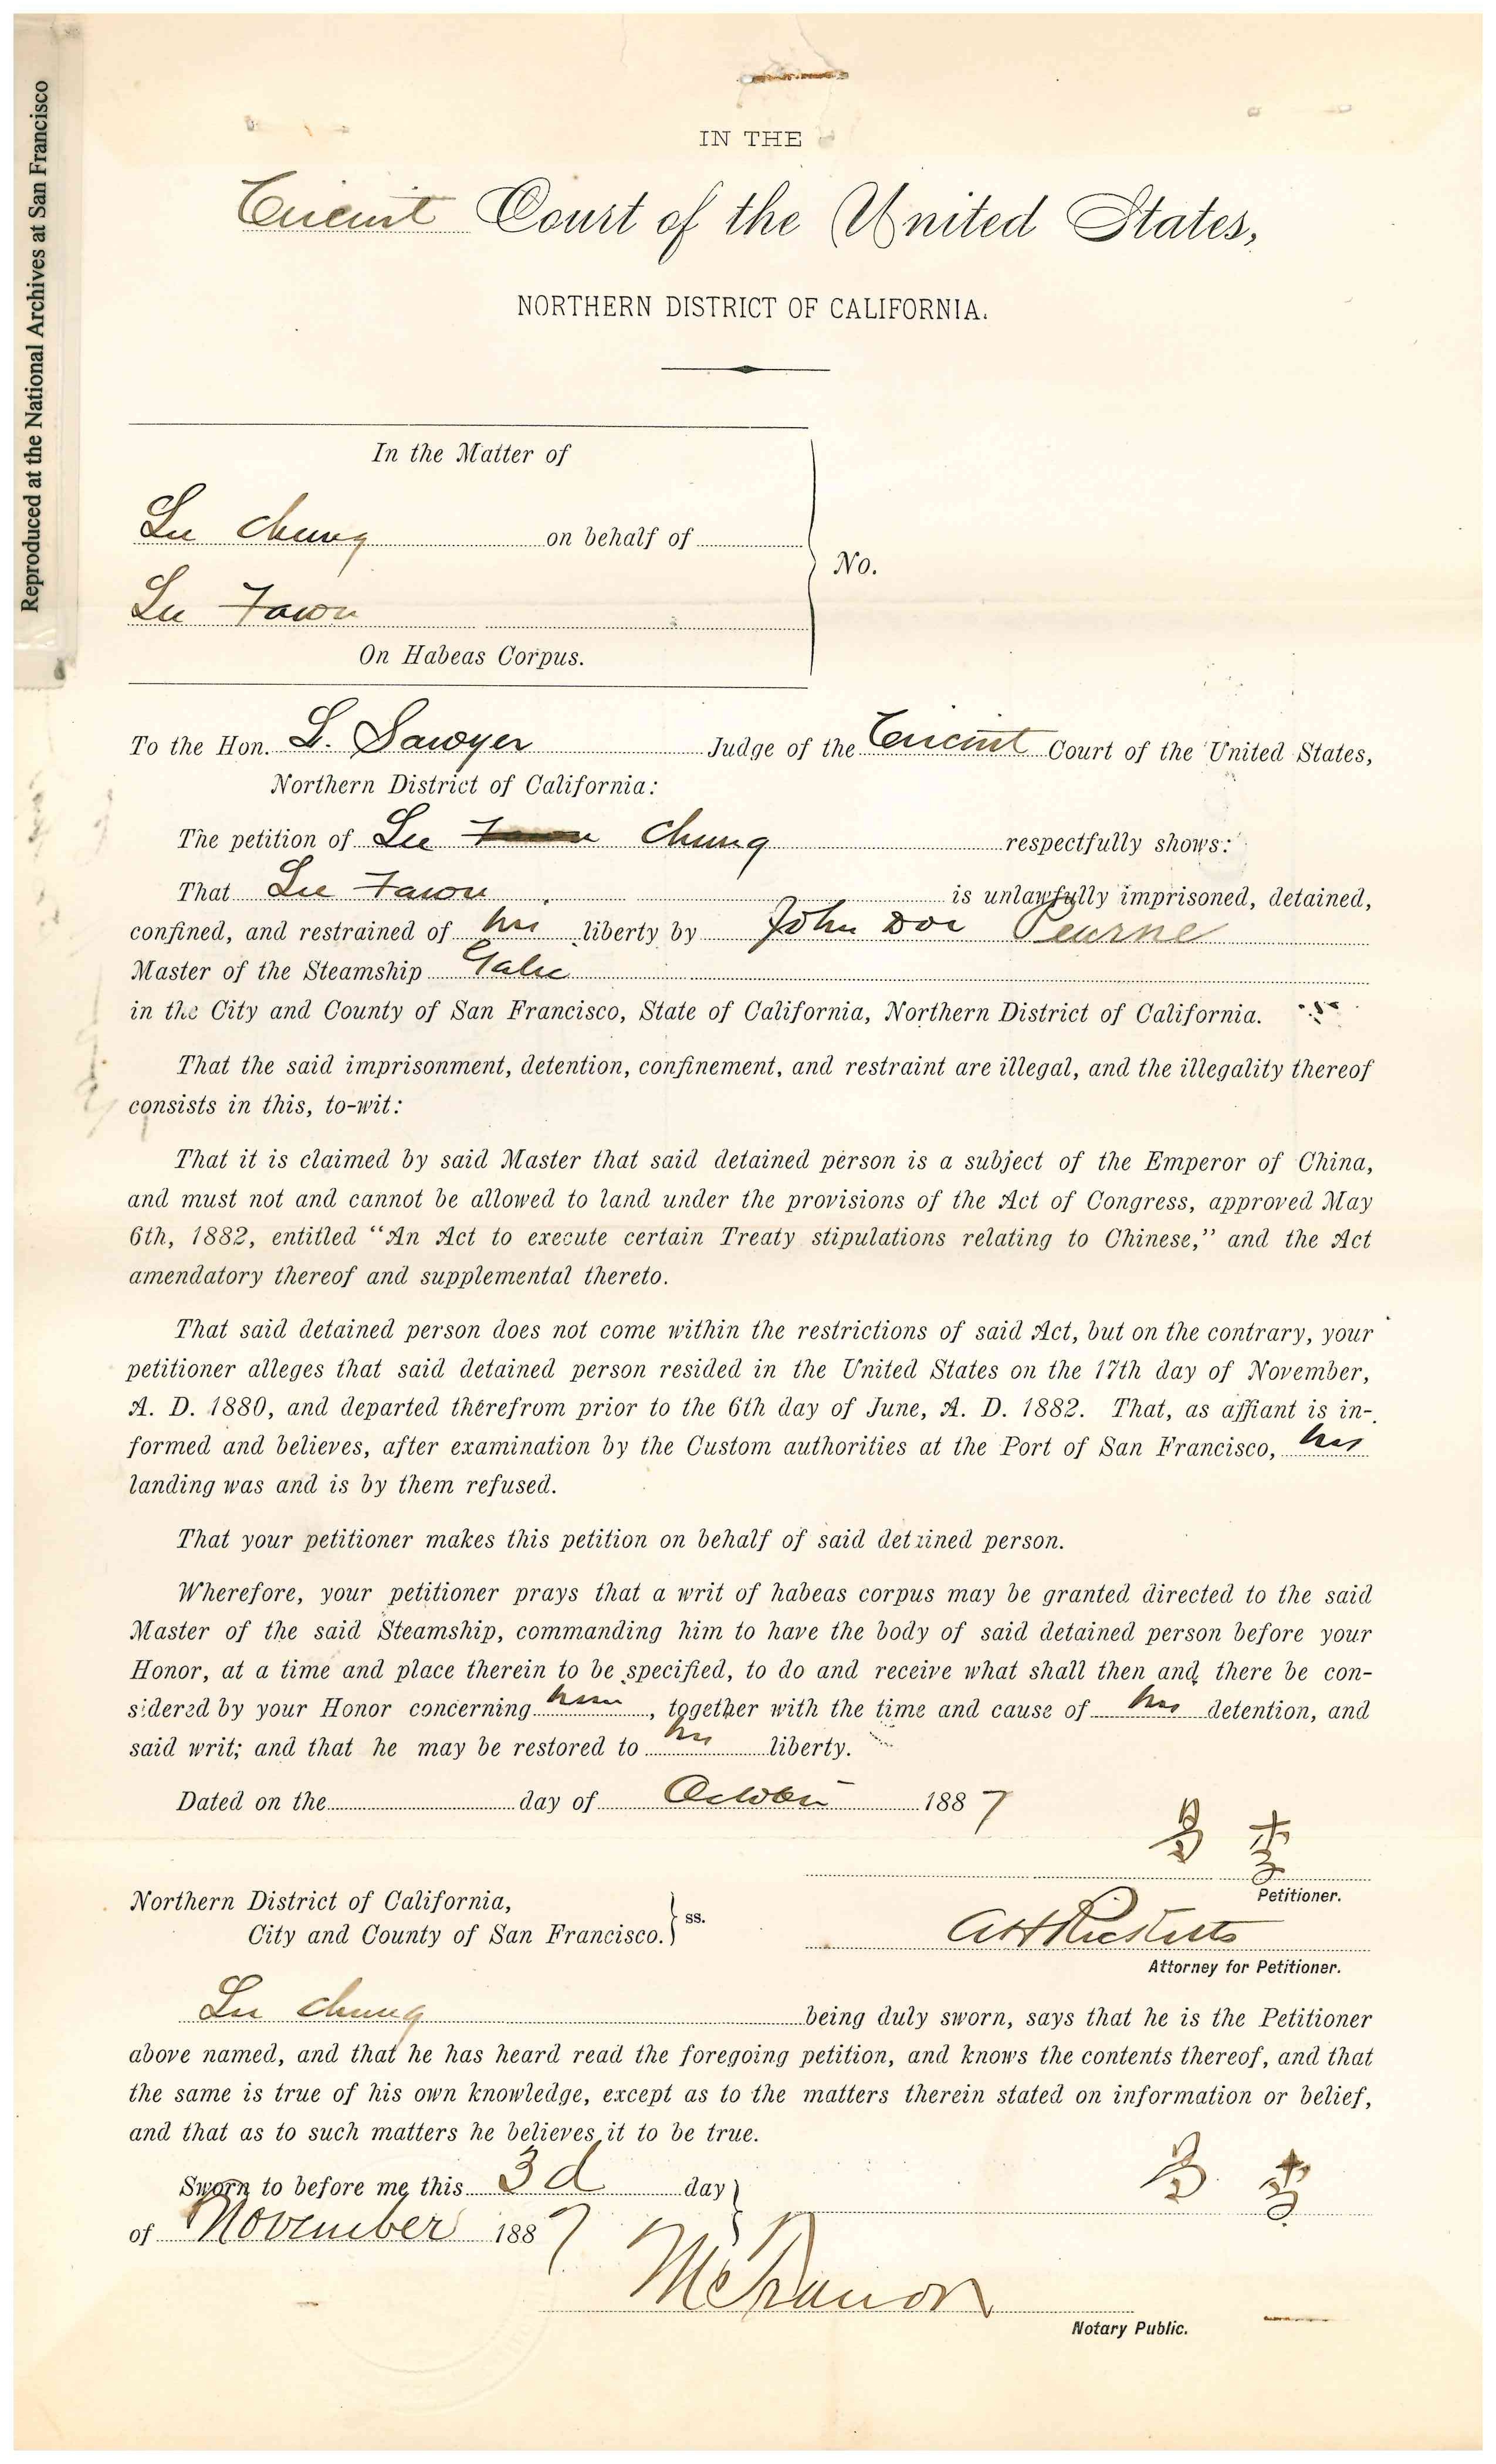 Reproduced at the National Archives at San Francisco
IN THE
Circuit Court of the United States,
NORTHERN DISTRICT OF CALIFORNIA.
In the Matter of
Lee Chung on behalf of
Lee Fawn
On Habeas Corpus.
No.
To the Hon. L. Sawyer Judge of the Circuit Court of the United States,
Northern District of California:
The petition of Lee Chung respectfully shows:
That Lee Fawn is unlawfully imprisoned, detained,
confined, and restrained of his liberty by John Doe Pearne
Master of the Steamship Gaelic
in the City and County of San Francisco, State of California, Northern District of California.
That the said imprisonment, detention, confinement, and restraint are illegal, and the illegality thereof
consists in this, to-wit:
That it is claimed by said Master that said detained person is a subject of the Emperor of China,
and must not and cannot be allowed to land under the provisions of the Act of Congress, approved May
6th, 1882, entitled "An Act to execute certain Treaty stipulations relating to Chinese," and the Act
amendatory thereof and supplemental thereto.
That said detained person does not come within the restrictions of said Act, but on the contrary, your
petitioner alleges that said detained person resided in the United States on the 17th day of November,
A. D. 1880, and departed therefrom prior to the 6th day of June, A. D. 1882. That, as affiant is in-
formed and believes, after examination by the Custom authorities at the Port of San Francisco, his
landing was and is by them refused.
That your petitioner makes this petition on behalf of said detained person.
Wherefore, your petitioner prays that a writ of habeas corpus may be granted directed to the said
Master of the said Steamship, commanding him to have the body of said detained person before your
Honor, at a time and place therein to be specified, to do and receive what shall then and there be con-
sidered by your Honor concerning him, together with the time and cause of his detention, and
said writ; and that he may be restored to his liberty.
Dated on the day of October 1887
李
Petitioner.
Northern District of California,
City and County of San Francisco. ss.
A H Ricketts
Attorney for Petitioner.
Lee Chung being duly sworn, says that he is the Petitioner
above named, and that he has heard read the foregoing petition, and knows the contents thereof, and that
the same is true of his own knowledge, except as to the matters therein stated on information or belief,
and that as to such matters he believes it to be true.
Sworn to before me this 3d day
李
of November 1887
Notary Public.